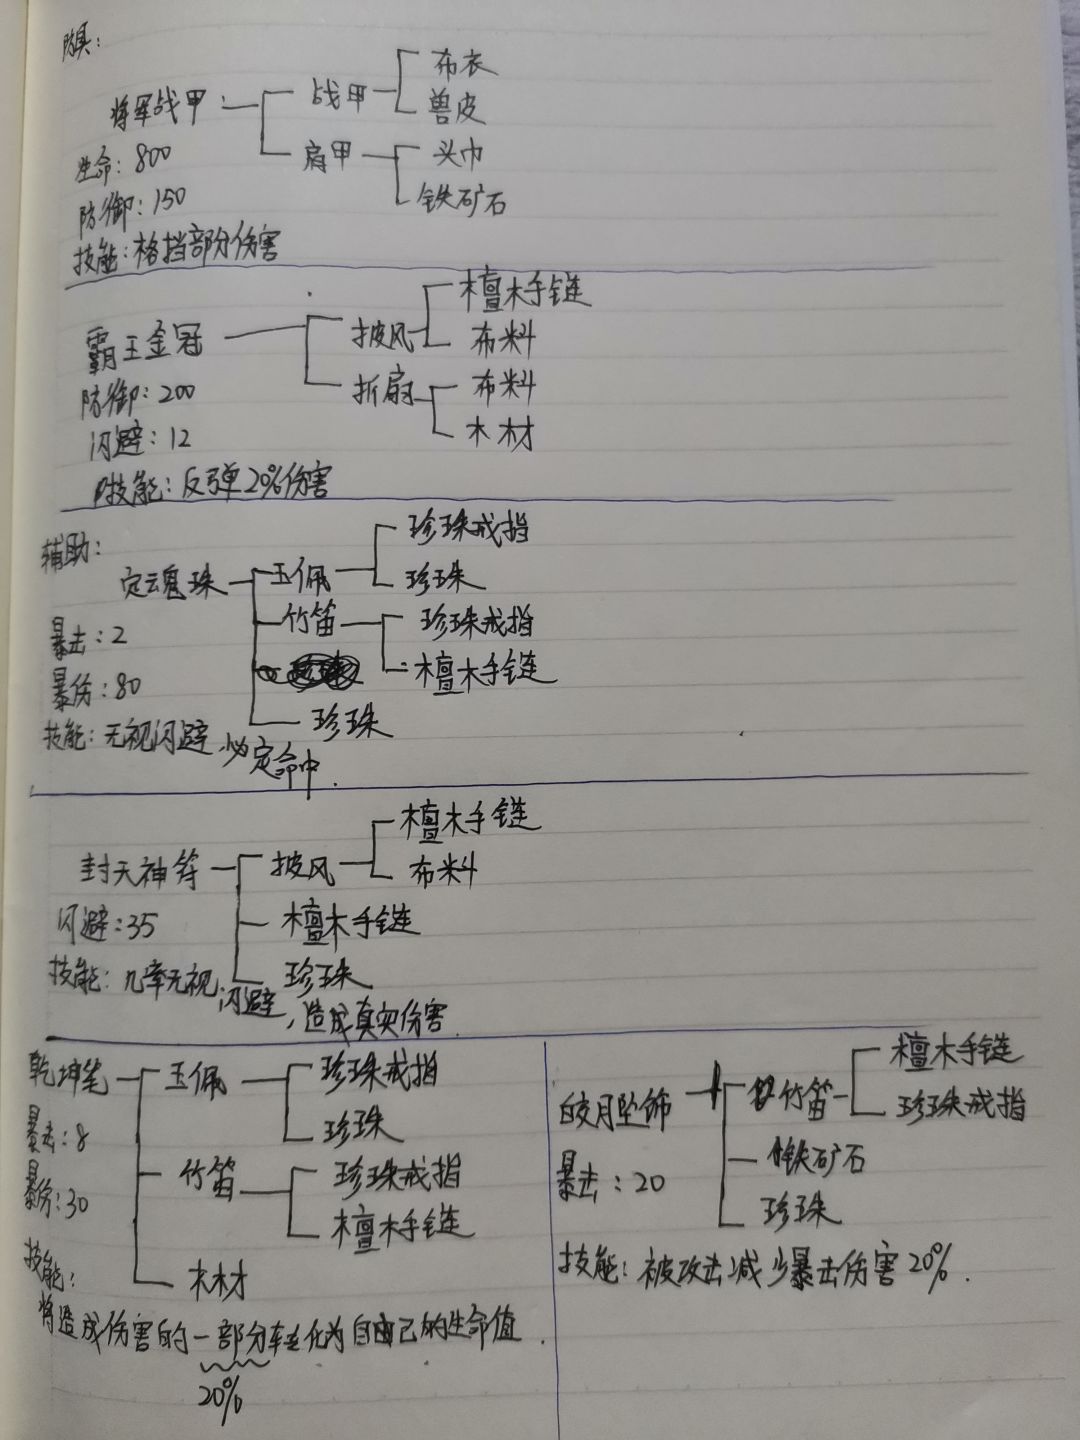 防具:
布衣
将军战甲 战甲
兽皮
肩甲 头巾
生命:800
铁矿石
防御:150
技能:格挡部分伤害
檀木手链
霸王金冠 披风 布料
防御:200 折扇 布料
闪避:12 木材
技能:反弹20%伤害
辅助:
珍珠戒指
定魂珠 玉佩 珍珠
竹笛 珍珠戒指
暴击:2
檀木手链
暴伤:80
珍珠
技能:无视闪避,必定命中.
檀木手链
封天神符 披风 布料
闪避:35 檀木手链
技能:几率无视闪避,造成真实伤害.
珍珠
乾坤笔 玉佩 珍珠戒指
珍珠
暴击:8
竹笛 珍珠戒指
暴伤:30
檀木手链
木材
技能:
将造成伤害的一部分转化为自己的生命值.
20%
檀木手链
皎月坠饰 竹笛 珍珠戒指
铁矿石
暴击:20
珍珠
技能:被攻击减少暴击伤害20%.